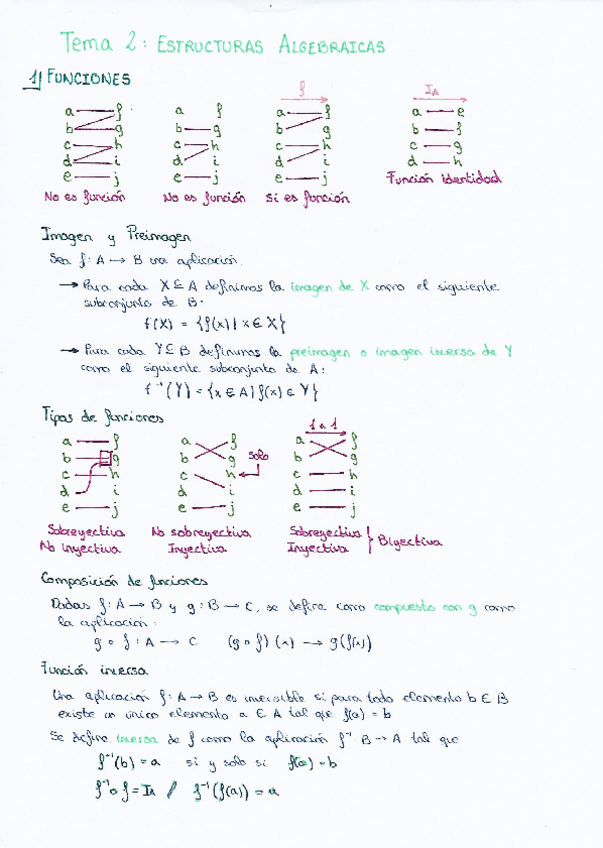 Tema 2: ESTRUCTURAS ALGEBRAICAS
1) FUNCIONES
f
IA
a f a f a f a e
b g b g b g b f
c h c h c h c g
d i d i d i d h
e j e j e j
Función identidad
No es función No es función Si es función
Imagen y Preimagen
Sea f: A → B una aplicación.
→ Para cada X ⊆ A definimos la imagen de X como el siguiente
subconjunto de B:
f(X) = {f(x) | x ∈ X}
→ Para cada Y ⊆ B definimos la preimagen o imagen inversa de Y
como el siguiente subconjunto de A:
f⁻¹(Y) = {x ∈ A | f(x) ∈ Y}
Tipos de funciones
1 a 1
a f a f a f
b g b g b g
solo
c h c h c h
d i d i d i
e j e j e j
Sobreyectiva No sobreyectiva Sobreyectiva
No inyectiva Inyectiva Inyectiva } Biyectiva
Composición de funciones
Dadas f: A → B y g: B → C, se define como compuesto con g como
la aplicación:
g ∘ f : A → C (g ∘ f)(x) → g(f(x))
Función inversa
Una aplicación f: A → B es inversible si para todo elemento b ∈ B
existe un único elemento a ∈ A tal que f(a) = b
Se define inversa de f como la aplicación f⁻¹ B → A tal que
f⁻¹(b) = a si y solo si f(a) = b
f⁻¹ ∘ f = IA / f⁻¹(f(a)) = a